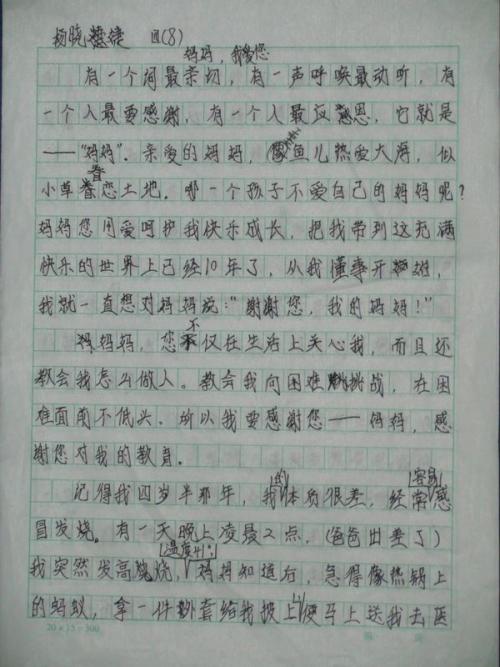 杨晓楚婕 四(8)
妈妈,我爱您
有一个词最亲切,有一声呼唤最动听,有
一个人最要感谢,有一个人最应感恩,它就是
——“妈妈”.亲爱的妈妈,像鱼儿热爱大海,似
小草眷恋土地。哪一个孩子不爱自己的妈妈呢?
妈妈您用爱呵护我快乐成长,把我带到这充满
快乐的世界上已经10年了,从我懂事开始,
我就一直想对妈妈说:“谢谢您,我的妈妈!”
妈妈,您不仅在生活上关心我,而且还
教会我怎么做人。教会我向困难挑战,在困
难面前不低头。所以我要感谢您——妈妈,感
谢您对我的教育。
记得我四岁半那年,我的体质很差,容易经常感
冒发烧。有一天晚上凌晨2点,(爸爸出差了)
我突然发高烧,温度41℃,妈妈知道后,急得像热锅上
的蚂蚁,拿一件外套给我披上便马上送我去医
20×15=300